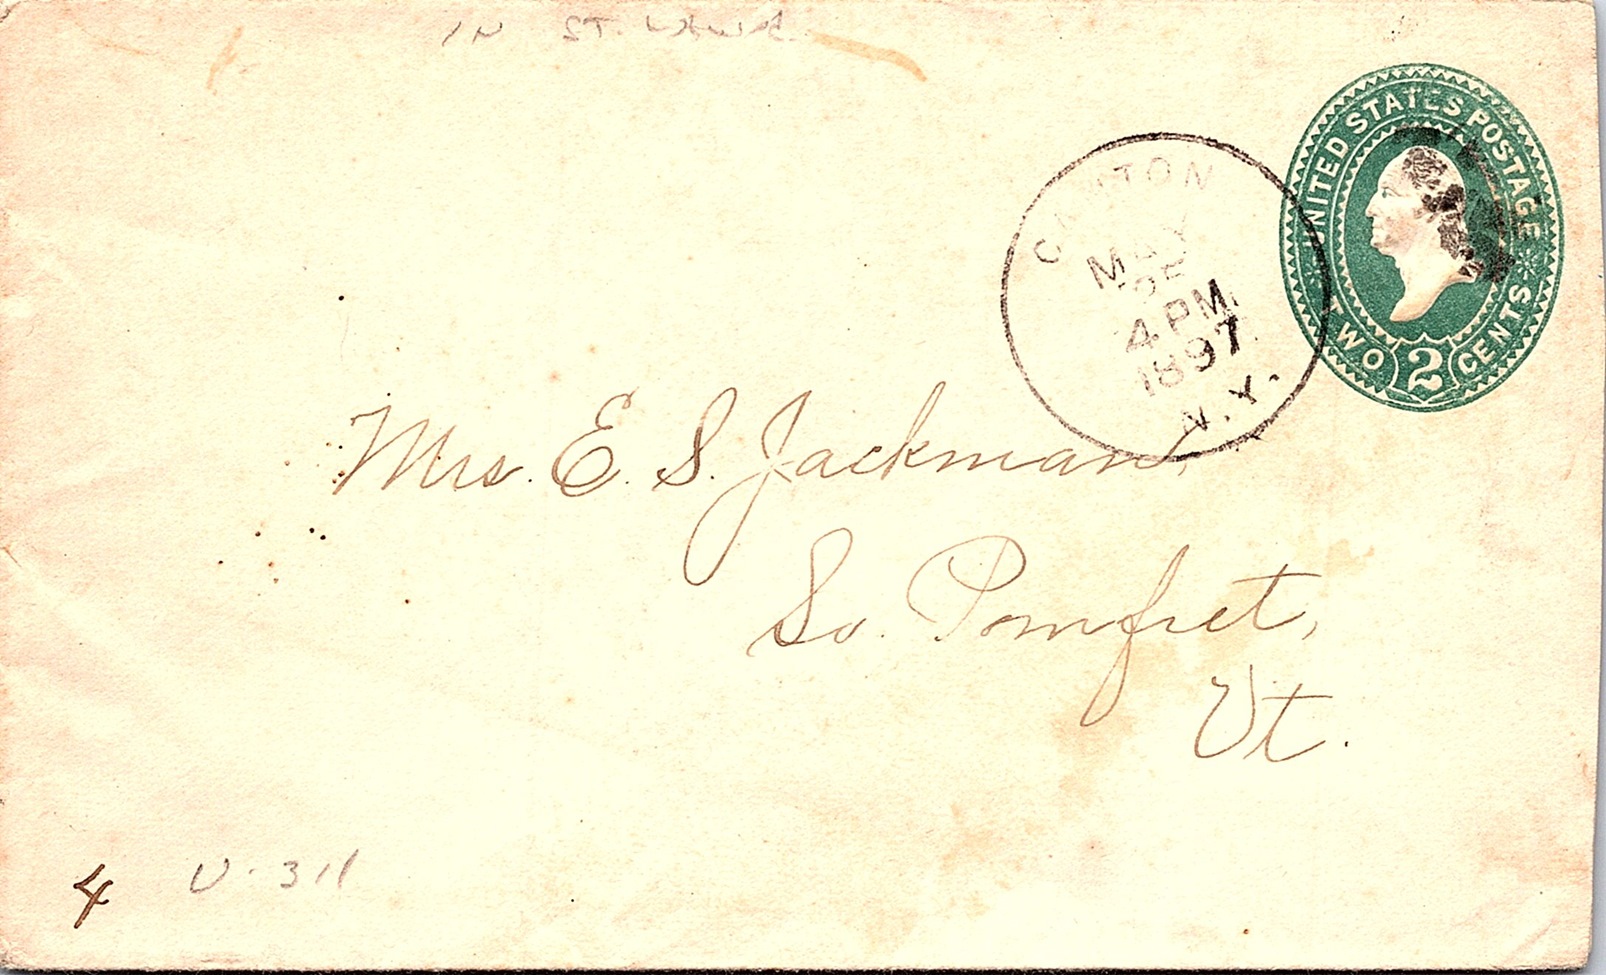 IN ST.
UNITED STATES POSTAGE
TWO 2 CENTS
CANTON
MAY
25
4 PM
1897
N.Y.
Mrs. E. S. Jackman,
So. Pomfret,
Vt.
4 U-311